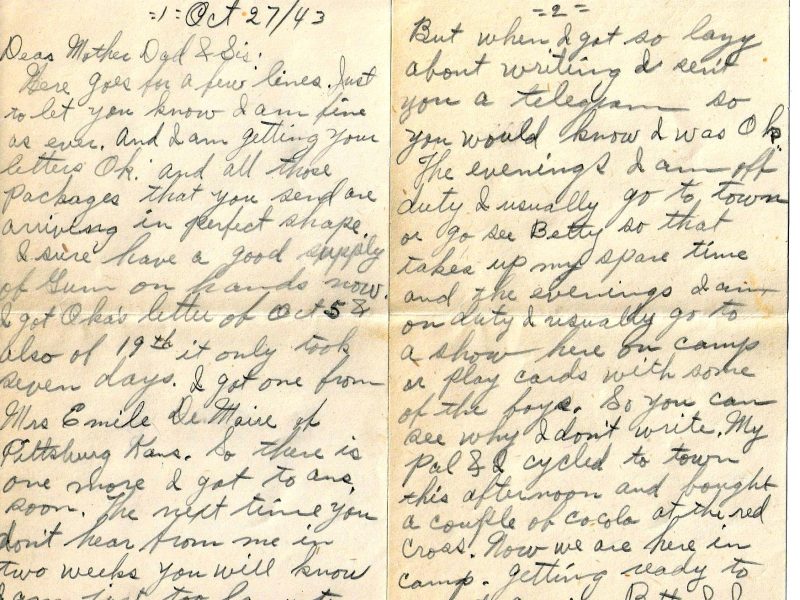 =1= Oct 27/43
Dear Mother Dad & Sis:
Here goes for a few lines. Just
to let you know I am fine
as ever. And I am getting your
letters Ok. and all those
packages that you send are
arriving in perfect shape.
I sure have a good supply
of Gum on hands now.
I got Oka's letter of Oct 5 &
also of 19th it only took
seven days. I got one from
Mrs Emile De Maire of
Pittsburg Kans. So there is
one more I got to ans,
soon. The next time you
don't hear from me in
two weeks you will know
I am just too
=2=
But when I got so lazy
about writing I sent
you a telegram so
you would know I was Ok.
The evenings I am off
duty I usually go to town
or go see Betty so that
takes up my spare time
and the evenings I am
on duty I usually go to
a show here on camp
or play cards with some
of the boys. So you can
see why I don't write. My
pal & I cycled to town
this afternoon and bought
a couple of cocola at the red
cross. Now we are here in
camp. getting ready to